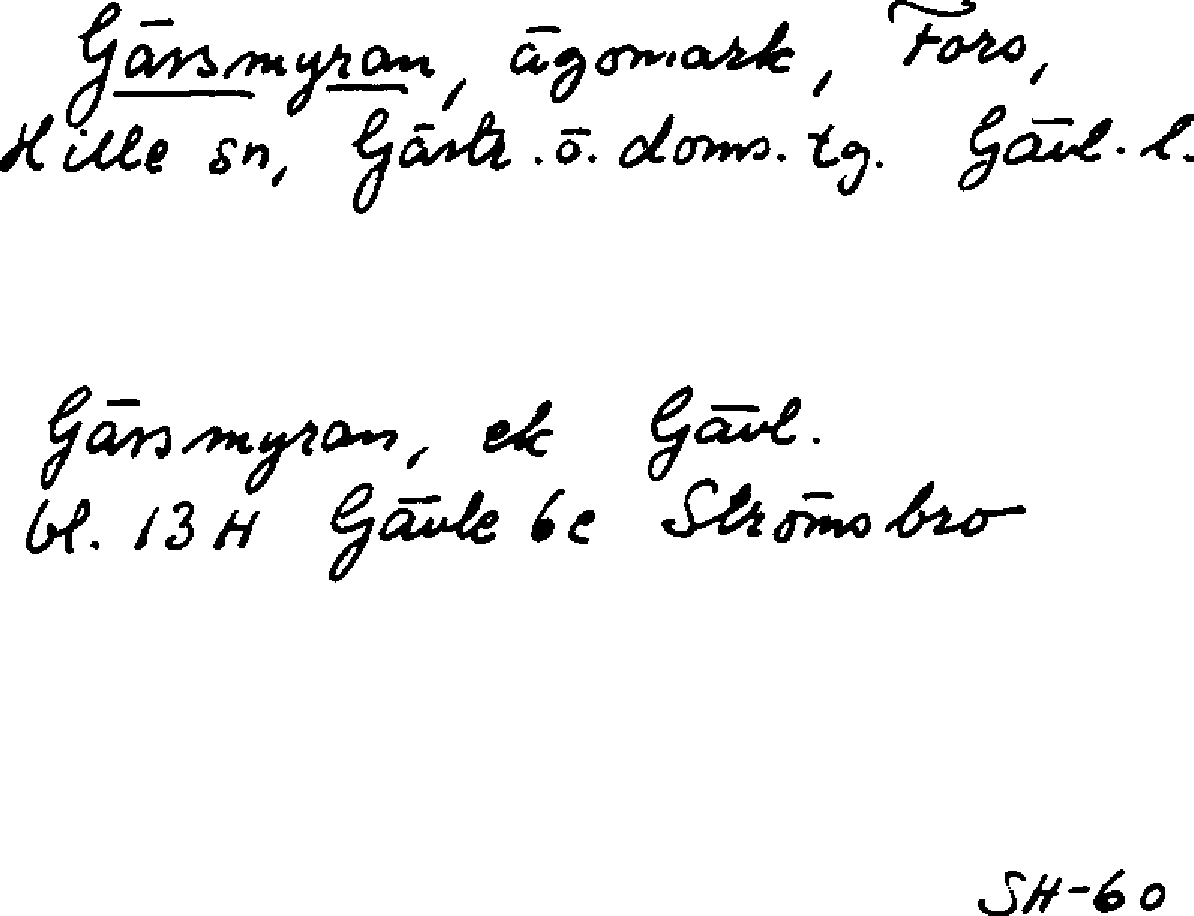 Gässmyran, ägomark, Fors,
Hille sn, Gästr. ö. doms. tg. Gävl. l.
Gässmyran, ek Gävl.
bl. 13H Gävle 6c Strömsbro
SH-60